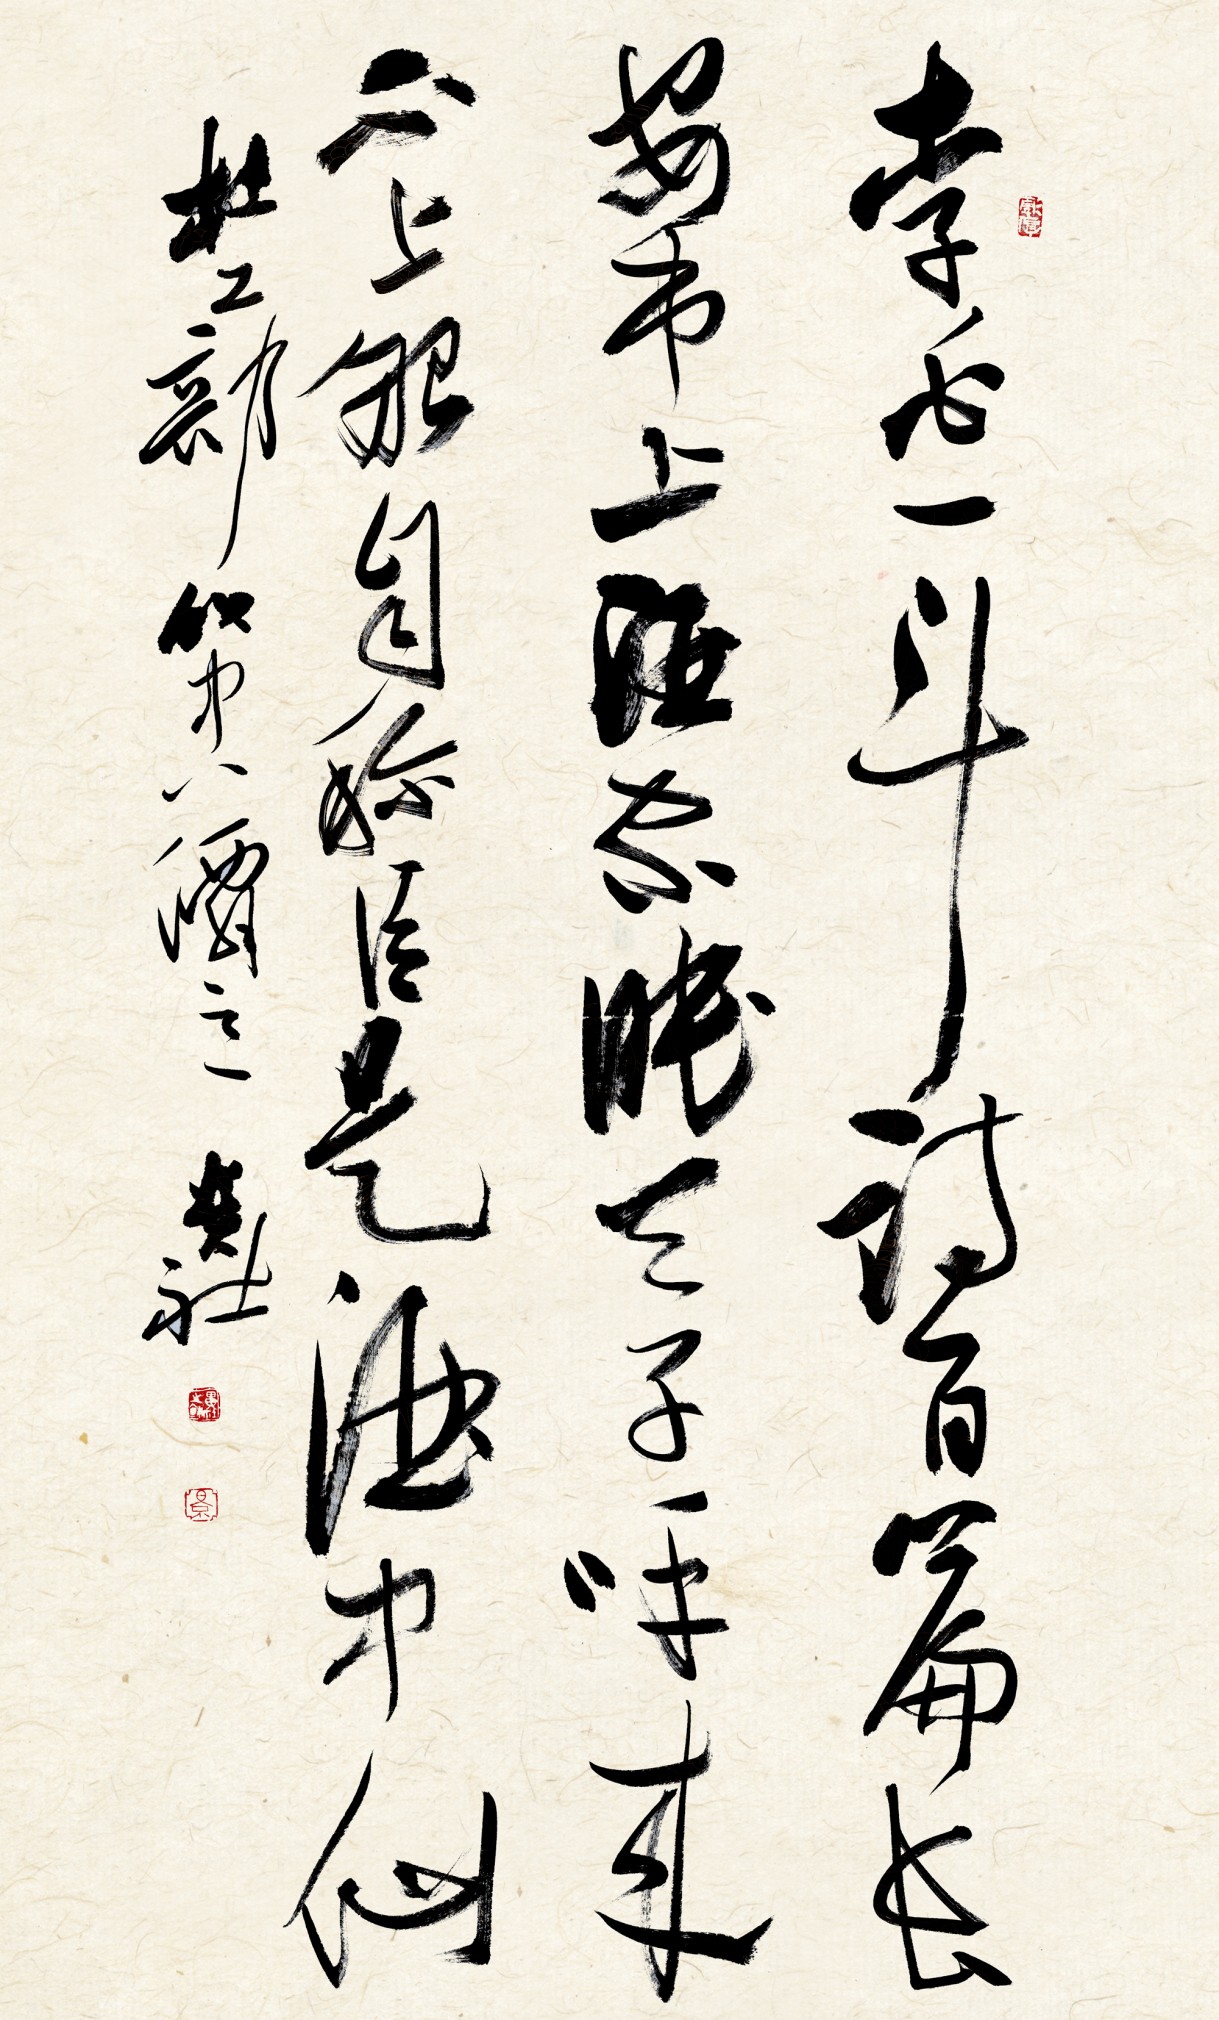 李白一斗诗百篇长
安市上酒家眠天子呼来
不上船自称臣是酒中仙
杜工部饮中八仙之